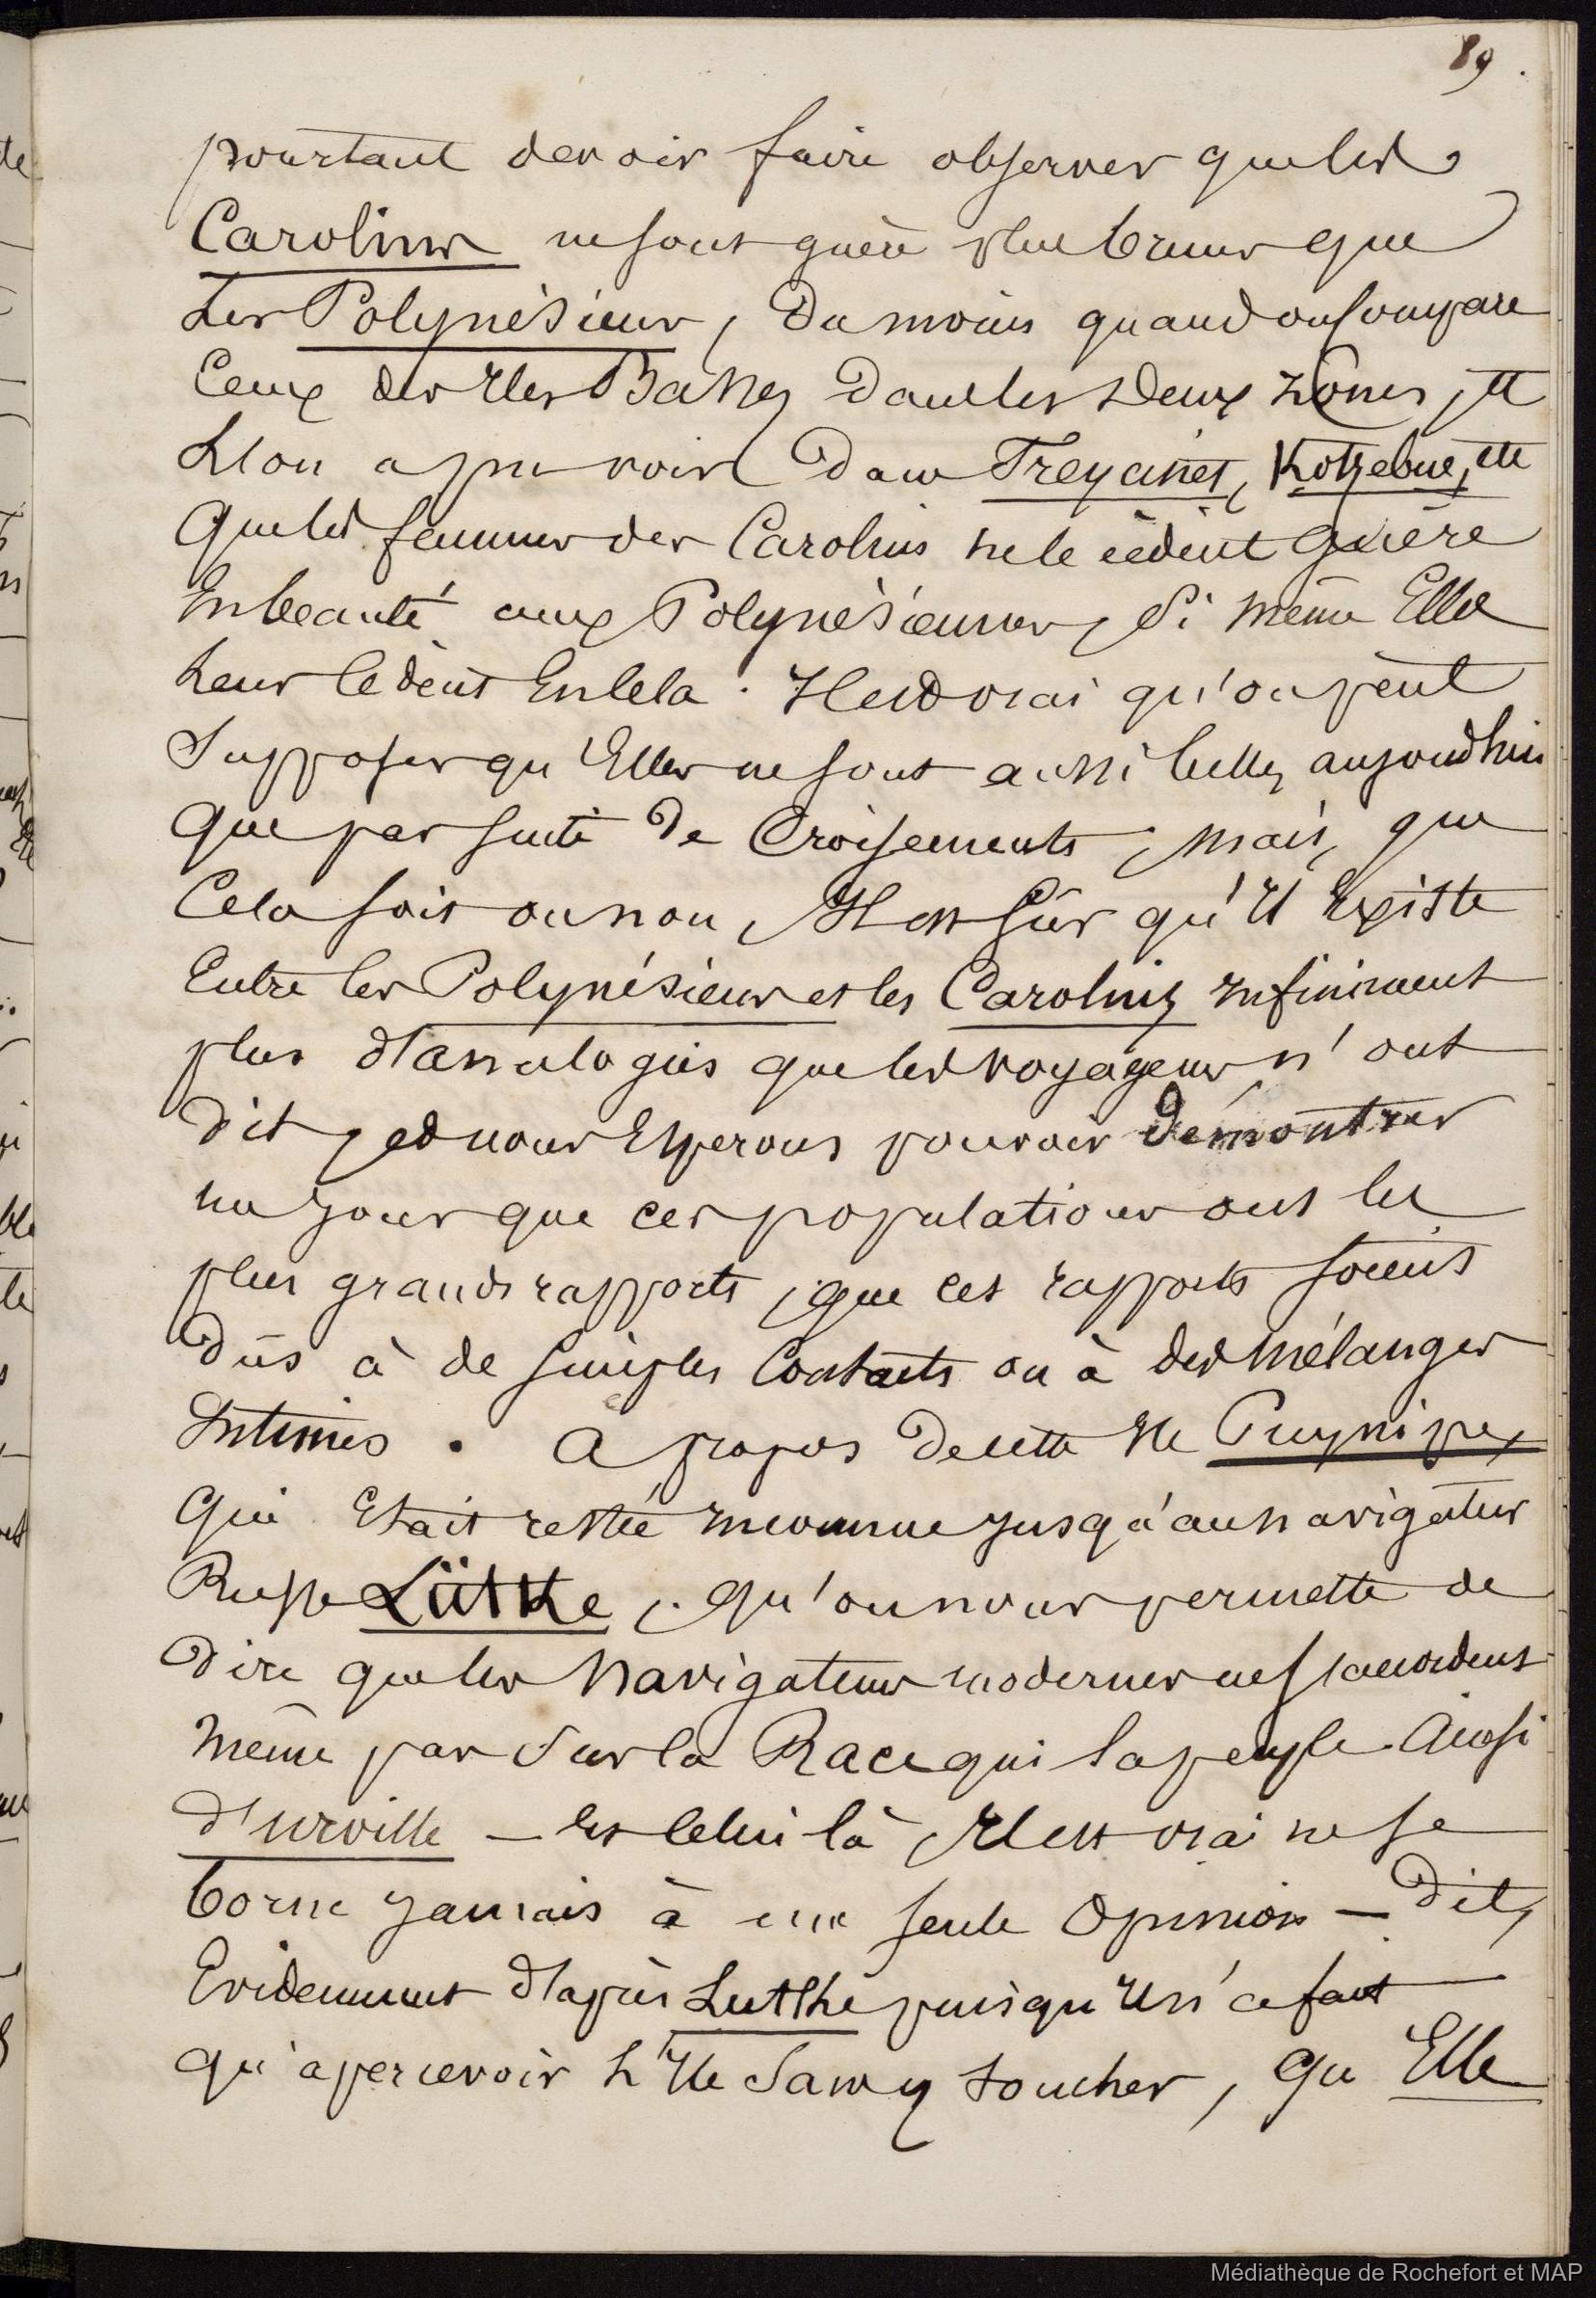 89.
pourtant devoir faire observer que les
Carolins ne sont guère plus bruns que
Les Polynésiens, Du moins quand on compare
Ceux des Iles Basses dans les deux zones, et
L'on a pu voir Dans Freycinet, Kotzebue, etc
Que les femmes des Carolins ne le cèdent guère
En beauté aux Polynésiennes, Si même Elles
Leur cèdent En cela. Il est vrai qu'on peut
Supposer qu'Elles ne sont aussi belles aujourd'hui
Que par suite De Croisements ; mais, que
Cela soit ou non, Il est sûr qu'Il Existe
Entre les Polynésiens et les Carolins Infiniment
plus d'analogies que les voyageurs n'ont
Dit, et nous Espérons pouvoir Démontrer
un jour que ces populations ont les
plus grands rapports, que ces rapports soient
Dûs à de simples Contacts ou à des mélanges
Intimes. A propos De cette Ile Puynipet,
Qui Etait restée Inconnue jusqu'au navigateur
Russe Lütke, qu'on nous permette de
Dire que les navigateurs modernes ne s'accordent
même pas Sur la Race qui la peuple. Ainsi
d'Urville — Et celui là, Il est vrai ne se
borne jamais à une seule Opinion — Dit,
Evidemment d'après Lutké puisqu'Il n'a fait
qu'apercevoir L'Ile Sans y toucher, Qu'Elle
Médiathèque de Rochefort et MAP